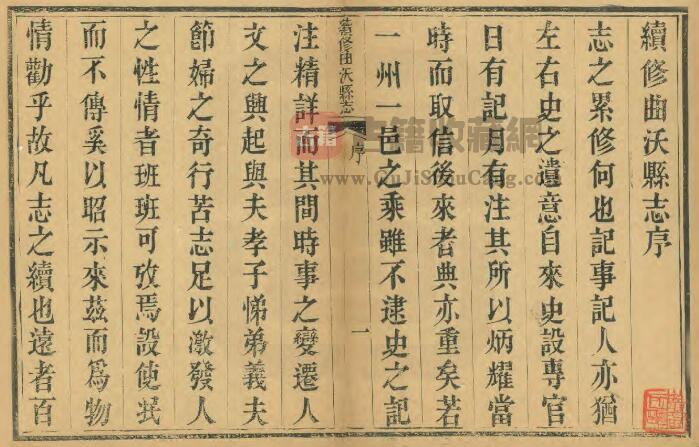 續修曲沃縣志序
志之累修何也記事記人亦猶
左右史之遺意自來史設專官
日有記月有注其所以炳耀當
時而取信後來者典亦重矣若
一州一邑之乘雖不逮史之記
續修曲沃縣志
序
一
注精詳而其間時事之變遷人
文之興起與夫孝子悌弟義夫
節婦之奇行苦志足以激發人
之性情者班班可攷焉設使泯
而不傳奚以昭示來茲而為物
情勸乎故凡志之續也遠者百
古籍收藏網
www.GuJiShouCang.com